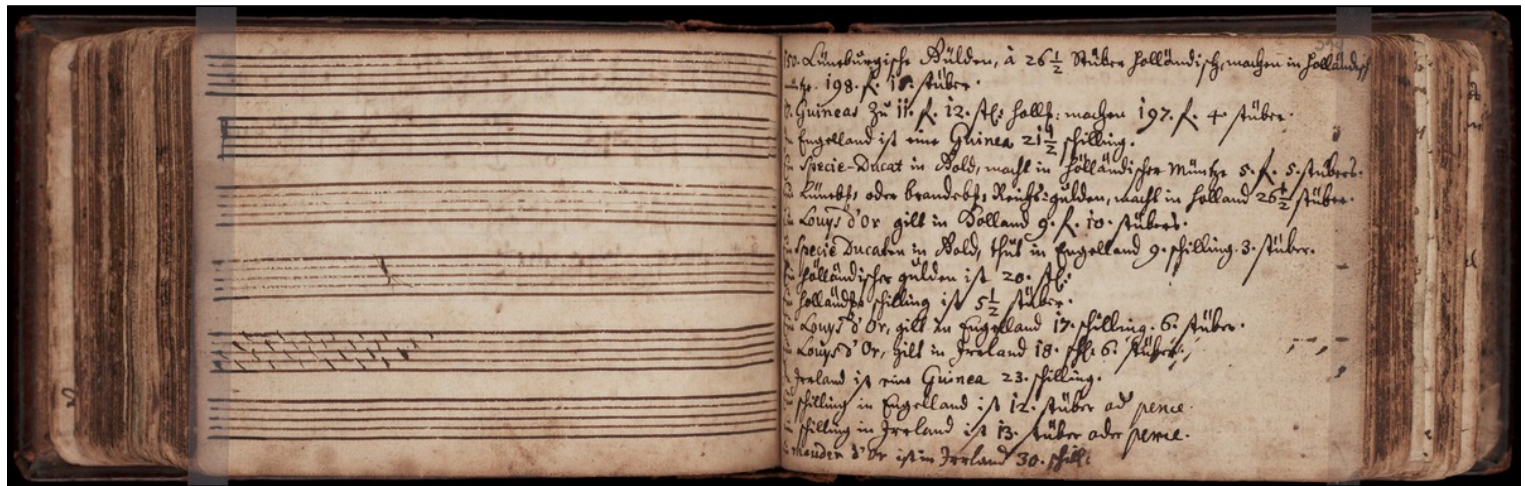 150. Lüneburgische Gülden, à 26 1/2 Stüber Holländisch, machen in Holländisch
198. f. 15. stüber.
Guineas zu 11. f. 12. stl: holl: machen 197. f. 4 stüber.
Engelland ist eine Guinea 21 1/2 schilling.
Specie-Ducat in Gold, macht in Holländischer Müntze 5. f. 5. stübers.
oder Reichs-gulden, macht in Holland 26 1/2 stüber.
Louys d'Or gilt in Holland 9. f. 10. stübers.
Specie Ducaten in Gold, thut in Engelland 9. schilling. 3. stüber.
Ein holländischer gülden ist 20. stl:
schilling ist 5 1/2 stüber.
Louys d'Or, gilt in Engelland 17. schilling. 6. stüber.
Louys d'Or, gilt in Irreland 18. 6. stüber.
Irreland ist eine Guinea 23. schilling.
schilling in Engelland ist 12. stüber od pence.
schilling in Irreland ist 13. stüber oder pence.
d'Or ist in Irreland 30. schill: